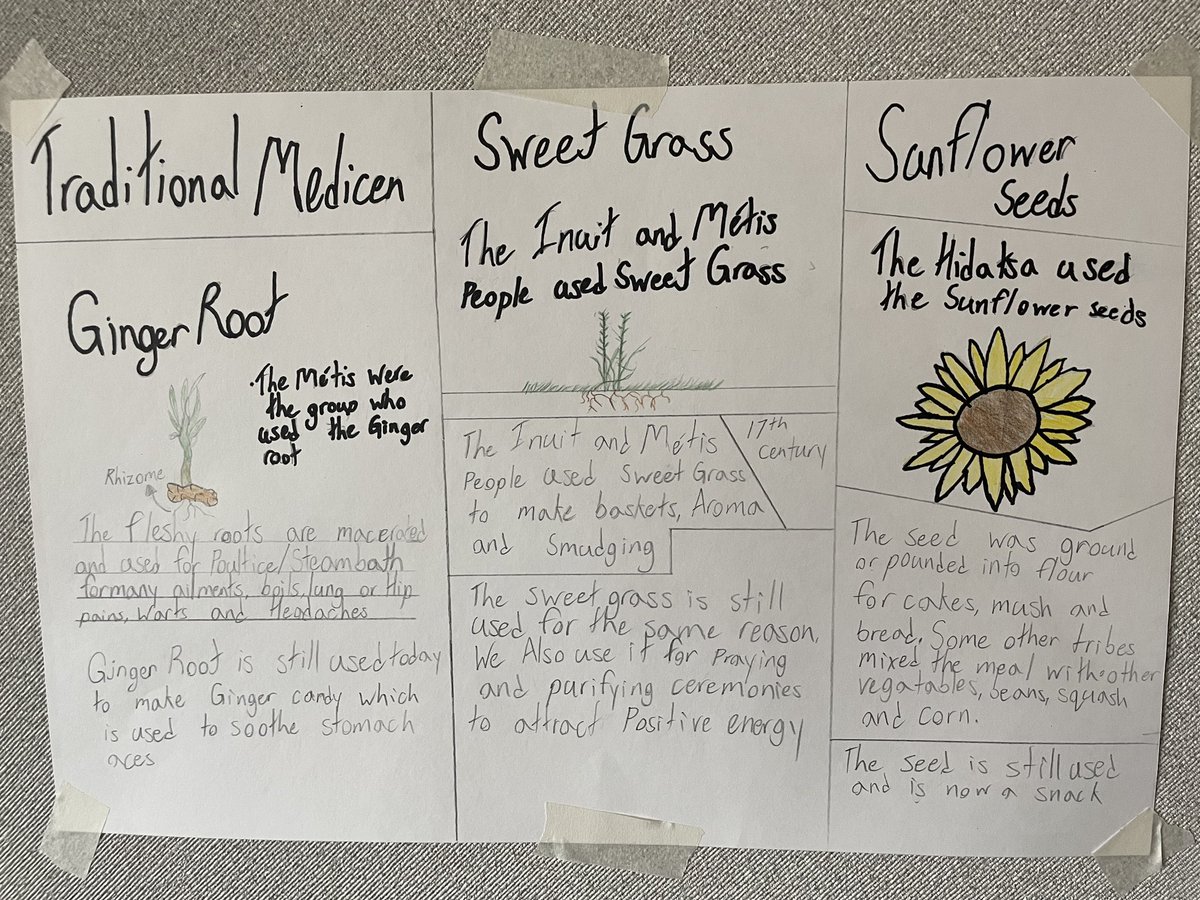 Traditional Medicen
Ginger Root
·The Métis were
the group who
used the Ginger
root
Rhizome
The fleshy roots are macerated
and used for Poultice/Steambath
formany ailments, boils, lung or Hip
pains, Warts and Headaches
Ginger Root is still used today
to make Ginger candy which
is used to soothe stomach
aces
Sweet Grass
The Inuit and Métis
People used Sweet Grass
The Inuit and Métis
People used Sweet Grass
to make baskets, Aroma
and Smudging
17th
century
The sweet grass is still
used for the same reason.
We Also use it for Praying
and purifying ceremonies
to attract Positive energy
Sunflower
Seeds
The Hidatsa used
the Sunflower seeds
The seed was ground
or pounded into flour
for cakes, mush and
bread. Some other tribes
mixed the meal with other
vegatables, beans, squash
and corn.
The seed is still used
and is now a snack